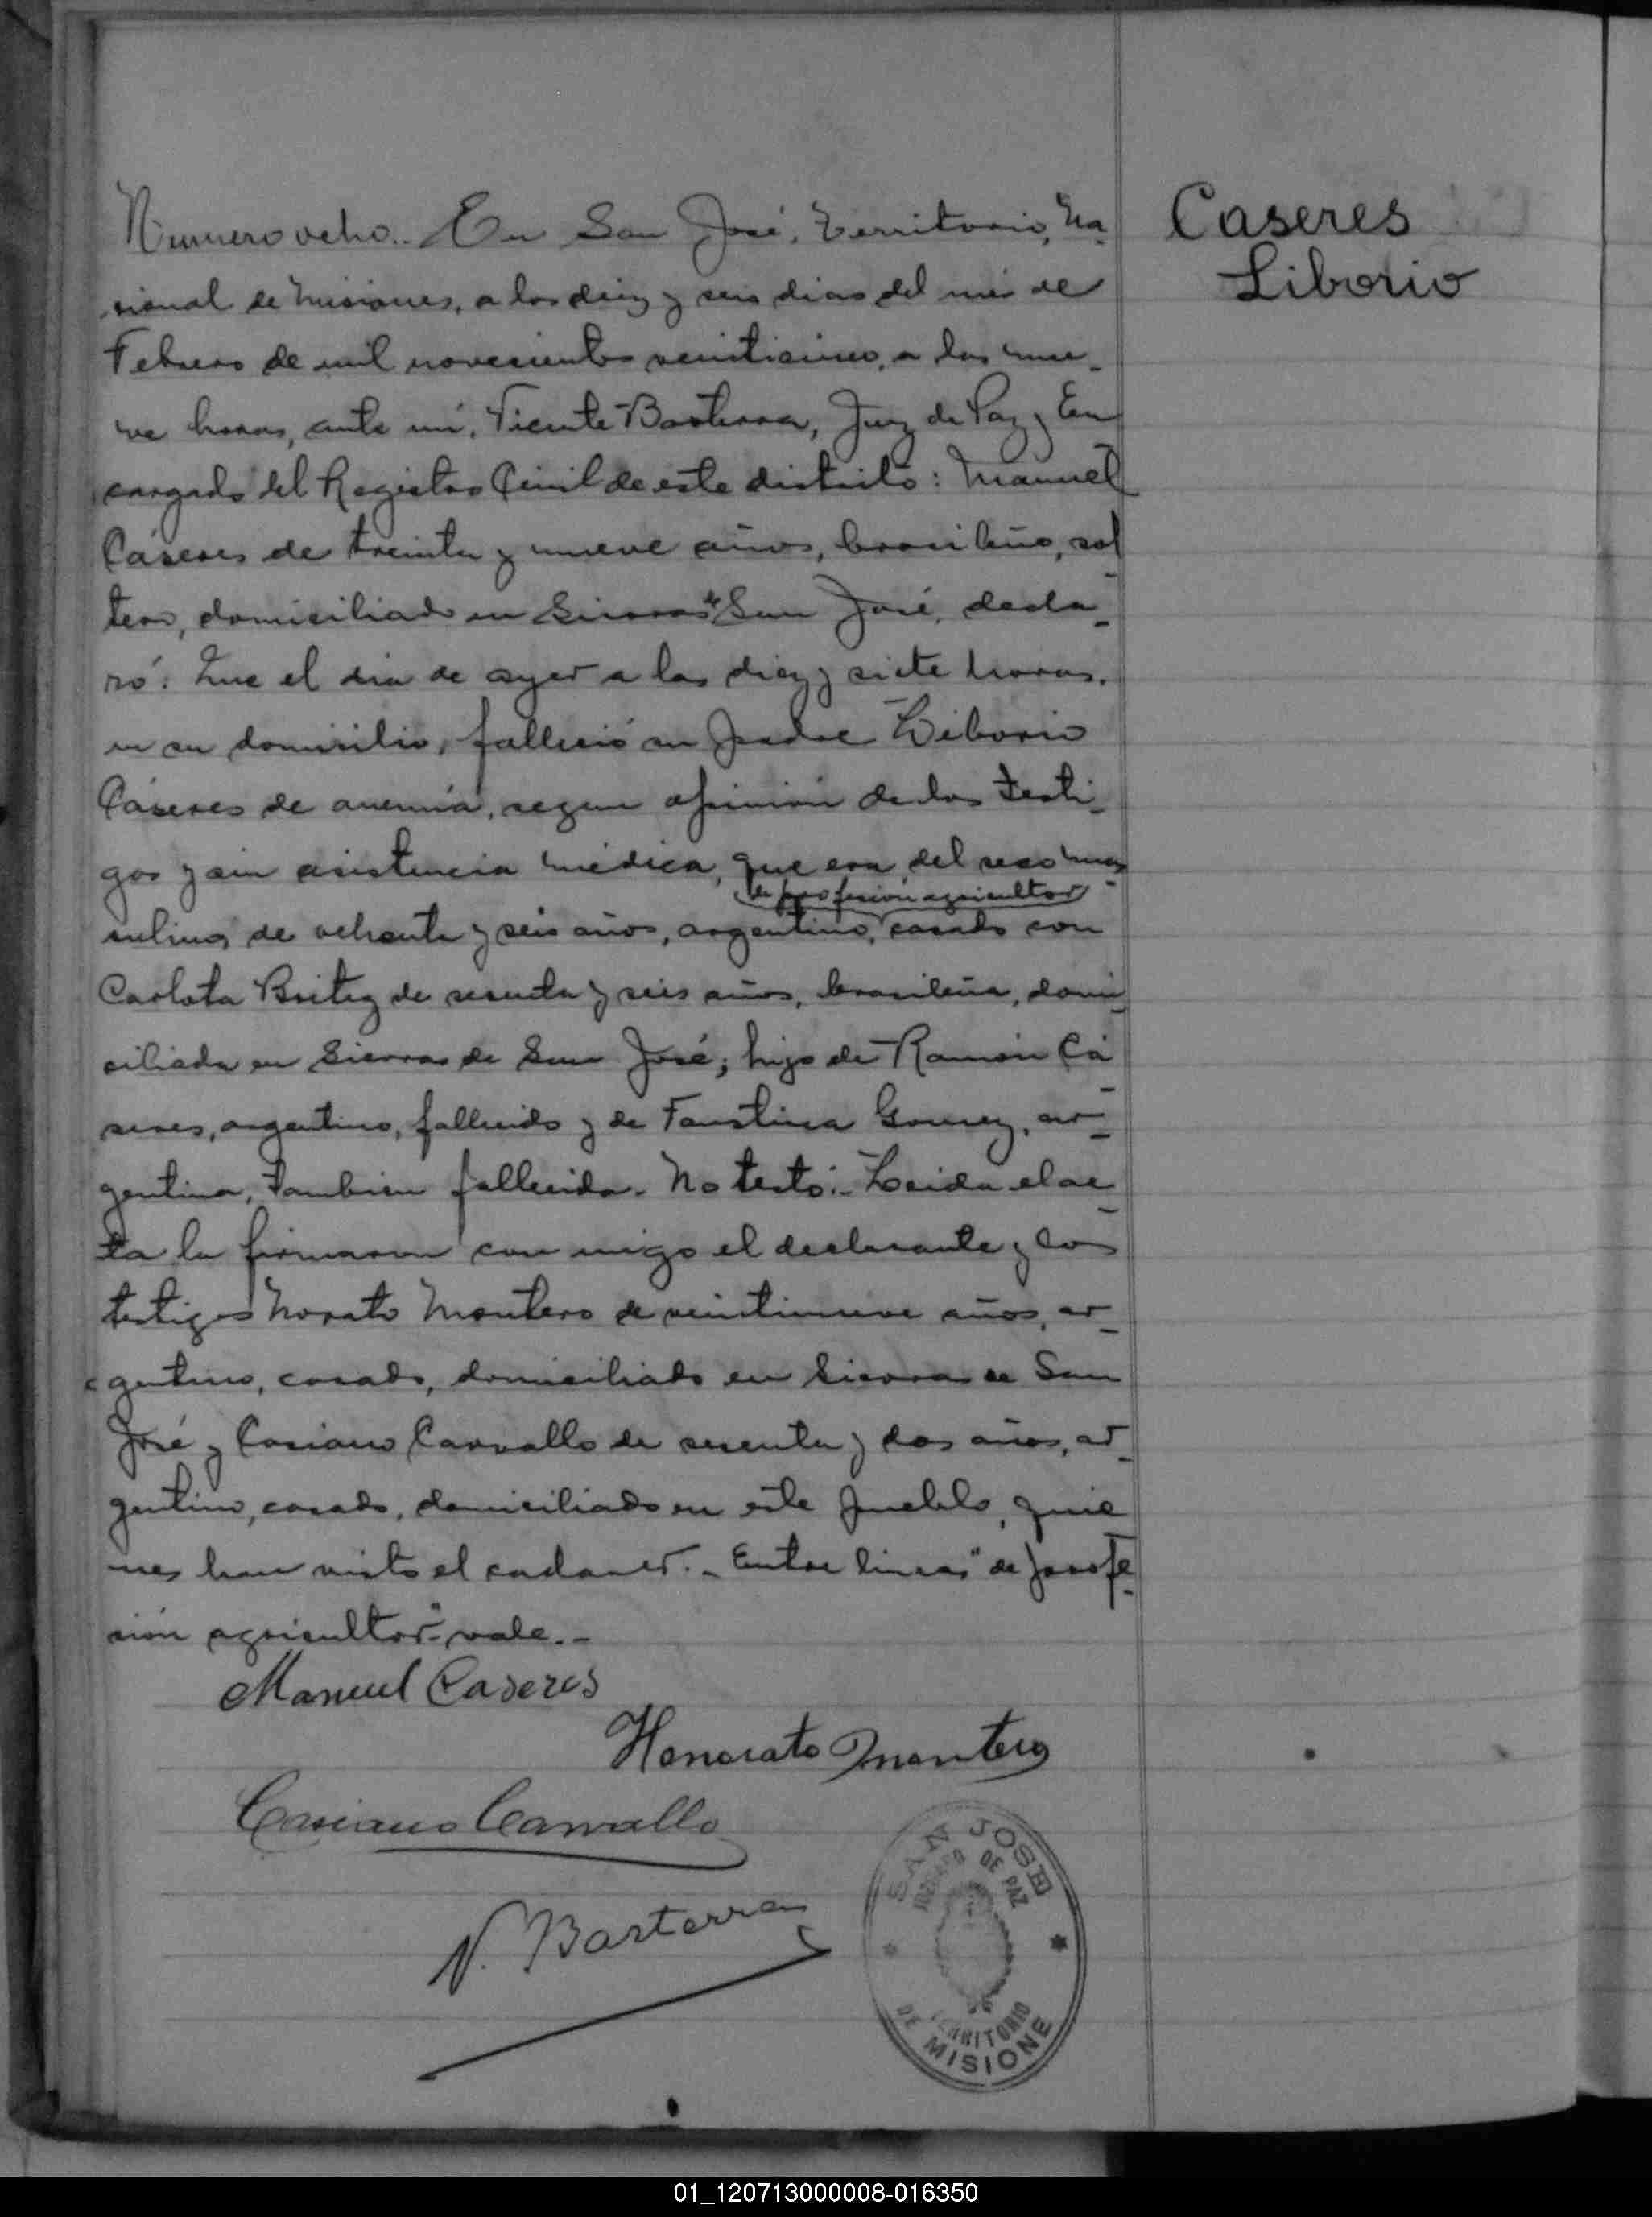 Numero ocho.. En San José, Territorio, Na-
sional de Misiones, a los diez y seis dias del mes de
Febrero de mil novecientos veinticinco, a las nue-
ve horas, ante mí, Vicente Basterra, Juez de Paz y En
cargado del Registro Civil de este distrito: Manuel
Cáseres de treinta y nueve años, brasileño, sol-
tero, domiciliado en Sierras de San José, decla-
ró: Que el dia de ayer a las diez y siete horas,
en su domicilio, falleció su padre Liborio
Cáseres de anemia, segun opinión de los testi-
gos y sin asistencia médica, que era del sexo mas-
de profesión agricultor
culino, de ochenta y seis años, argentino, casado con
Carlota Britez de sesenta y seis años, brasileña, domi-
ciliada en Sierras de San José; hijo de Ramón Cá-
seres, argentino, fallecido y de Faustina Gomez, ar-
gentina, tambien fallecida. No testó.- Leida el ac-
ta la firmaron con migo el declarante y los
testigos Norato Montero de veintinueve años, ar-
gentino, casado, domiciliado en Sierras de San
José y Casiano Carvallo de sesenta y dos años, ar-
gentino, casado, domiciliado en este pueblo, quie
nes han visto el cadaver.- Entre lineas "de profe-
sión agricultor" vale.-
Manuel Caseres
Honorato Montero
Casiano Carvallo
V. Basterra
Caseres
Liborio
SAN JOSE
JUZGADO DE PAZ
TERRITORIO
DE MISIONE
01_120713000008-016350